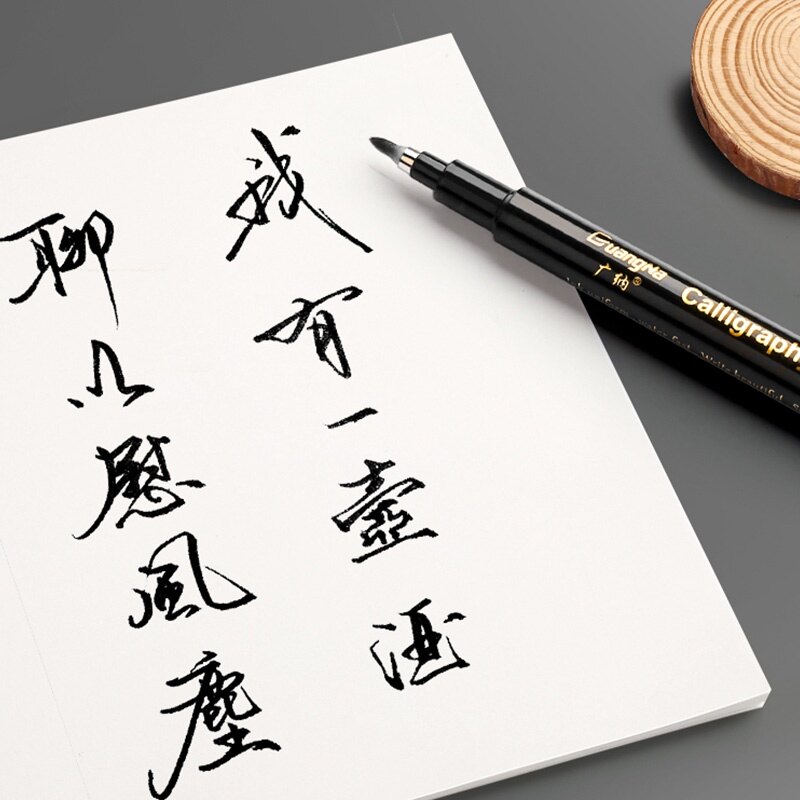 我有一壺酒
聊以慰風塵
GuangNa
广纳®
Calligraph